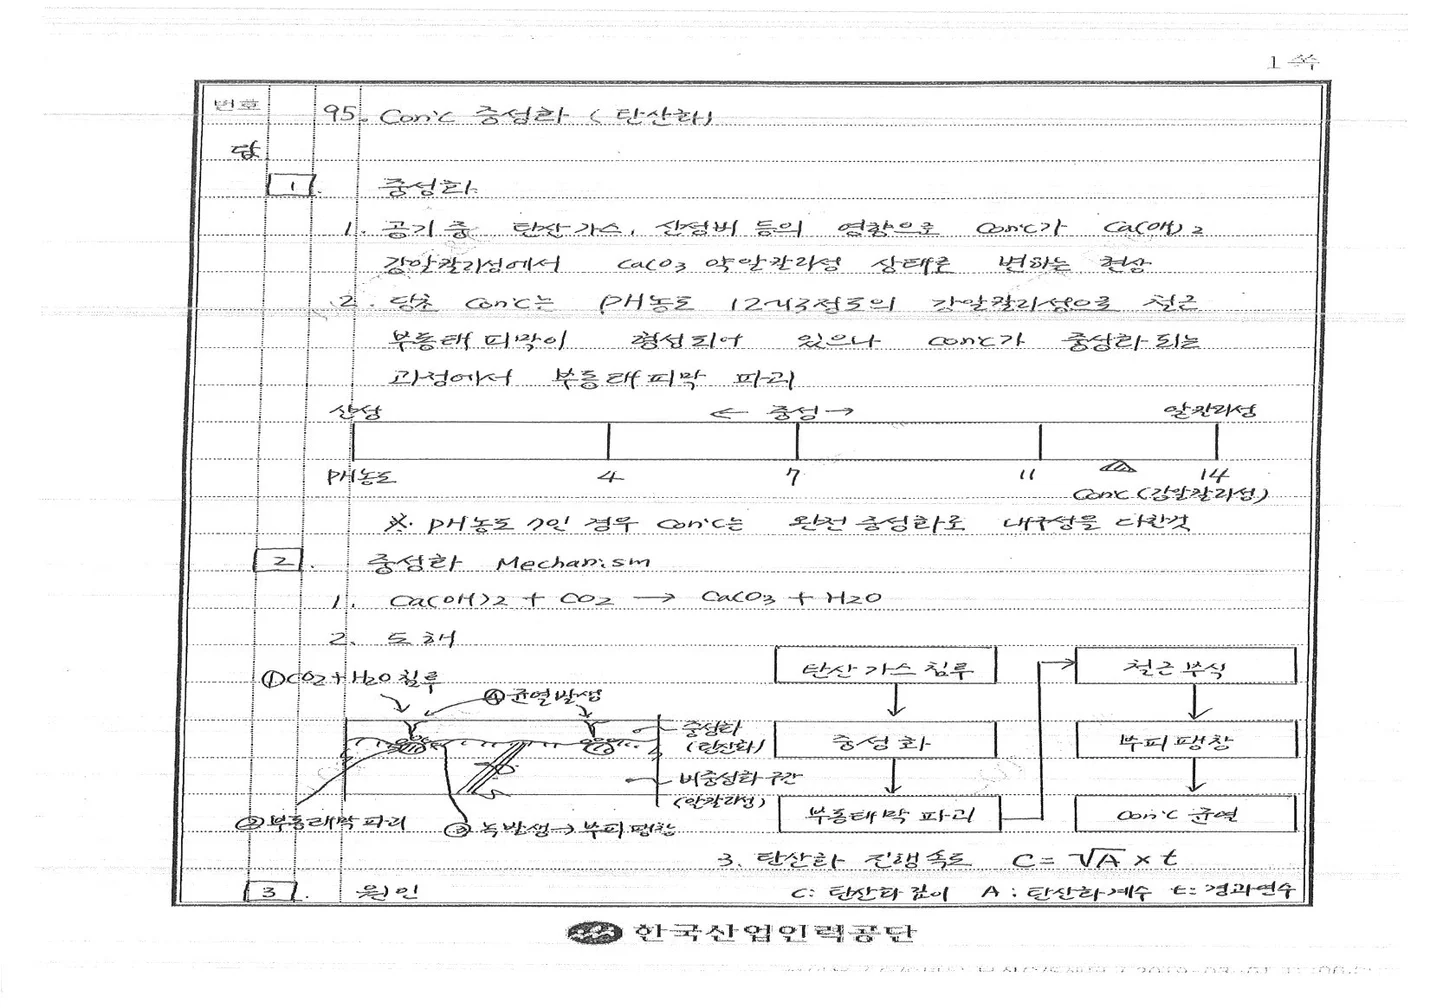 1 쪽
번호 95. Con'c 중성화 ( 탄산화)
답
1. 중성화
1. 공기 중 탄산가스, 산성비 등의 영향으로 Con'c가 Ca(OH)2
강알칼리성에서 CaCO3 약알칼리성 상태로 변하는 현상
2. 당초 Con'c는 PH농도 12~13정도의 강알칼리성으로 철근
부동태 피막이 형성되어 있으나 Con'c가 중성화되는
과정에서 부동태피막 파괴
산성 ← 중성 → 알칼리성
PH농도 4 7 11 14
Con'c (강알칼리성)
※. PH농도 7인 경우 Con'c는 완전 중성화로 내구성을 다한것
2. 중성화 Mechanism
1. Ca(OH)2 + CO2 → CaCO3 + H2O
2. 도해
①CO2+H2O 침투
④균열발생
중성화
(탄산화)
비중성화 구간
(알칼리성)
②부동태막 파괴
③ 녹발생→부피팽창
탄산가스 침투
중성화
부동태막 파괴
철근 부식
부피팽창
Con'c 균열
3. 탄산화 진행속도 C = √A × t
3. 원인
C: 탄산화깊이 A : 탄산화계수 t: 경과연수
한국산업인력공단